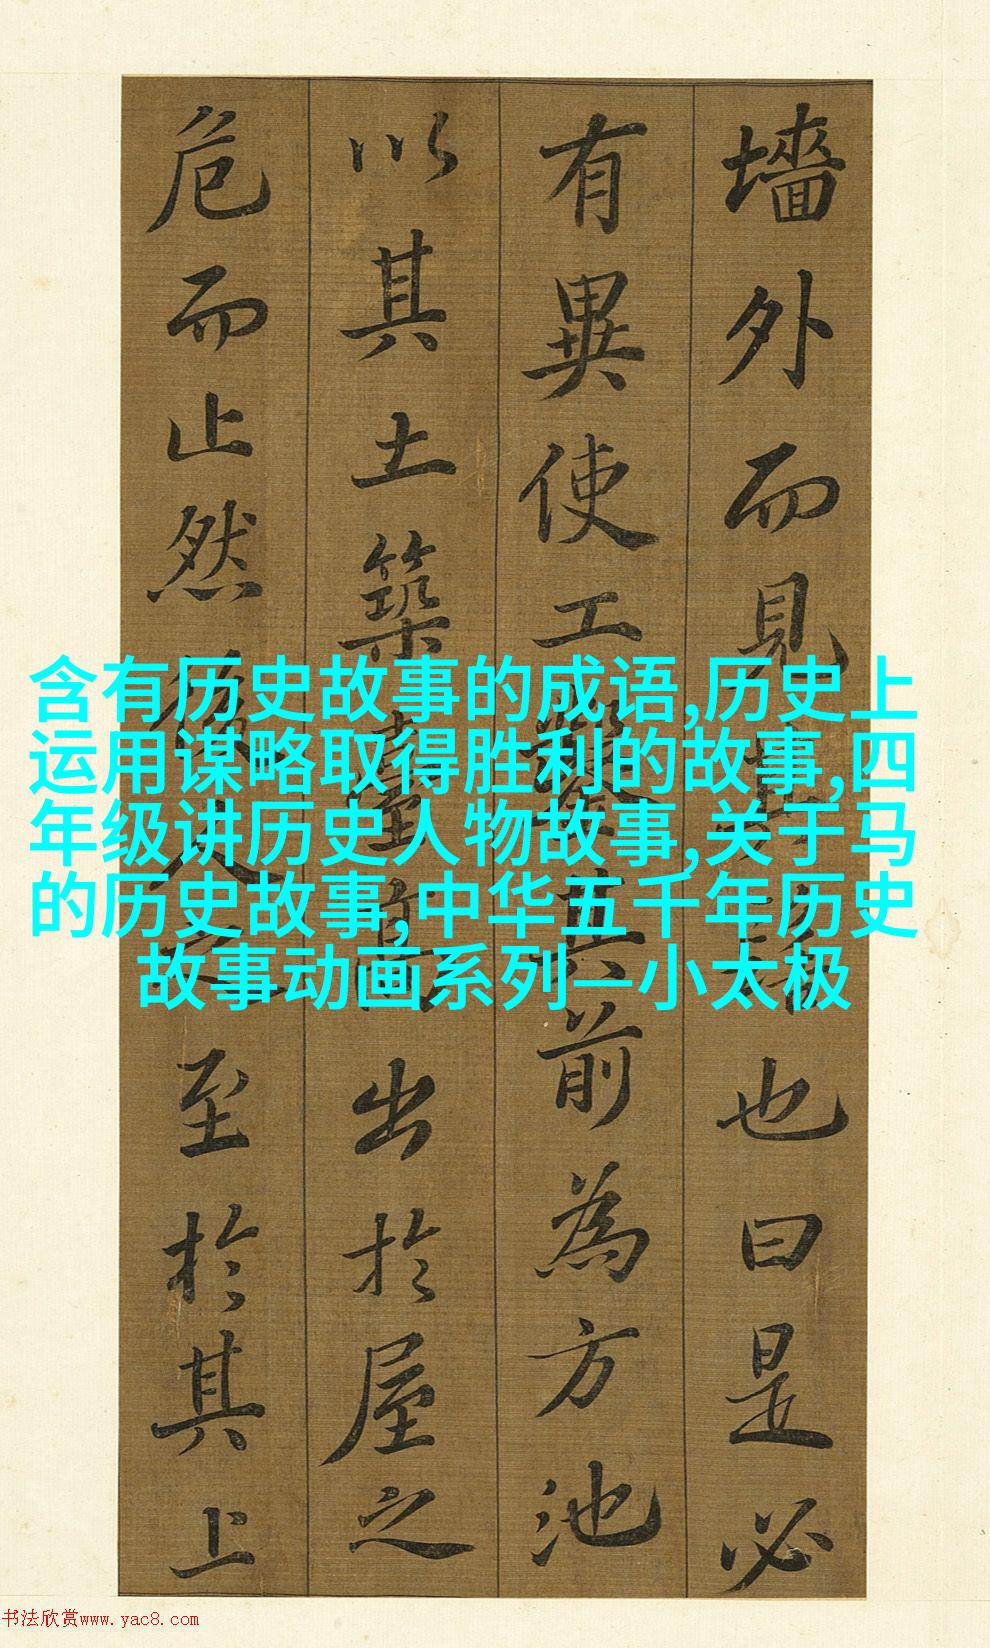 墻外而見其髻也曰是必
有異使工鑿其前為方池
以其土築臺高出於屋之
危而止然後人之至於其上
含有历史故事的成语,历史上
运用谋略取得胜利的故事,四
年级讲历史人物故事,关于马
的历史故事,中华五千年历史
故事动画系列—小太极
书法欣赏www.yac8.com